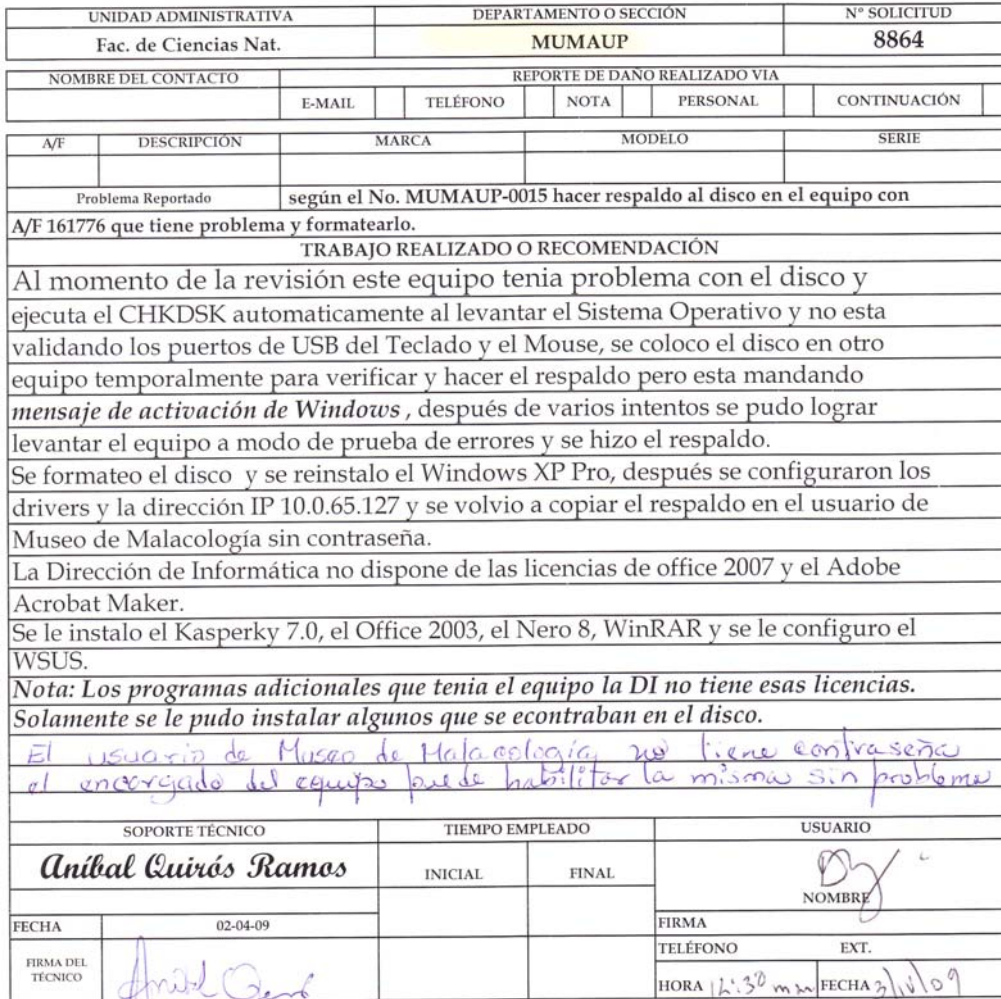 UNIDAD ADMINISTRATIVA DEPARTAMENTO O SECCIÓN N° SOLICITUD
Fac. de Ciencias Nat. MUMAUP 8864
NOMBRE DEL CONTACTO REPORTE DE DAÑO REALIZADO VIA
E-MAIL TELÉFONO NOTA PERSONAL CONTINUACIÓN
A/F DESCRIPCIÓN MARCA MODELO SERIE
Problema Reportado según el No. MUMAUP-0015 hacer respaldo al disco en el equipo con
A/F 161776 que tiene problema y formatearlo.
TRABAJO REALIZADO O RECOMENDACIÓN
Al momento de la revisión este equipo tenia problema con el disco y
ejecuta el CHKDSK automaticamente al levantar el Sistema Operativo y no esta
validando los puertos de USB del Teclado y el Mouse, se coloco el disco en otro
equipo temporalmente para verificar y hacer el respaldo pero esta mandando
mensaje de activación de Windows , después de varios intentos se pudo lograr
levantar el equipo a modo de prueba de errores y se hizo el respaldo.
Se formateo el disco y se reinstalo el Windows XP Pro, después se configuraron los
drivers y la dirección IP 10.0.65.127 y se volvio a copiar el respaldo en el usuario de
Museo de Malacología sin contraseña.
La Dirección de Informática no dispone de las licencias de office 2007 y el Adobe
Acrobat Maker.
Se le instalo el Kasperky 7.0, el Office 2003, el Nero 8, WinRAR y se le configuro el
WSUS.
Nota: Los programas adicionales que tenia el equipo la DI no tiene esas licencias.
Solamente se le pudo instalar algunos que se econtraban en el disco.
El usuario de Museo de Malacología no tiene contraseña
el encargado del equipo puede habilitar la misma sin problema
SOPORTE TÉCNICO TIEMPO EMPLEADO USUARIO
Aníbal Quirós Ramos INICIAL FINAL
NOMBRE
FECHA 02-04-09 FIRMA
TELÉFONO EXT.
FIRMA DEL
TÉCNICO
HORA FECHA